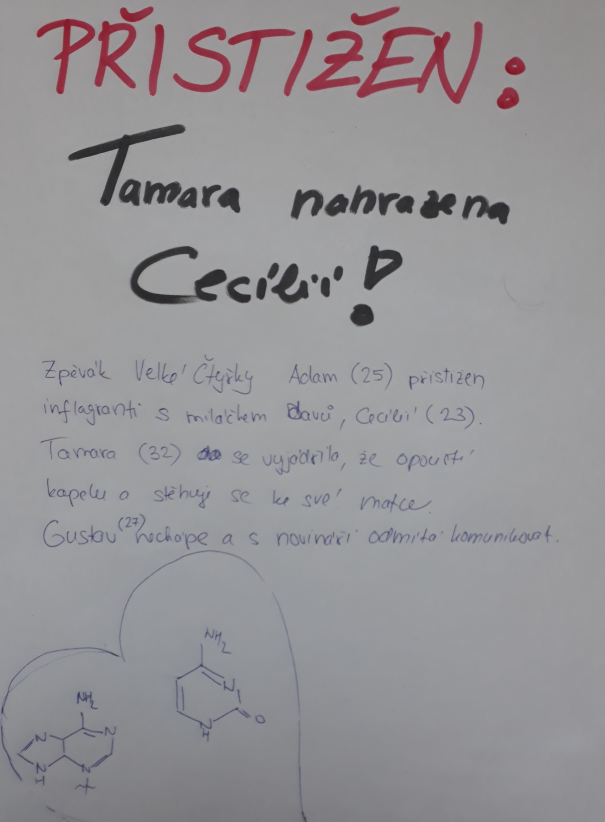 PŘISTIŽEN:
Tamara nahrazena
Cecílií!
Zpěvák Velké Čtyřky Adam (25) přistižen
inflagranti s miláčkem davů, Cecílií (23).
Tamara (32) se vyjádřila, že opouští
kapelu a stěhuje se ke své matce.
Gustav (27) nechápe a s novináři odmítá komunikovat.
NH2
N
N
O
N
H
NH2
N
N
N
H
N